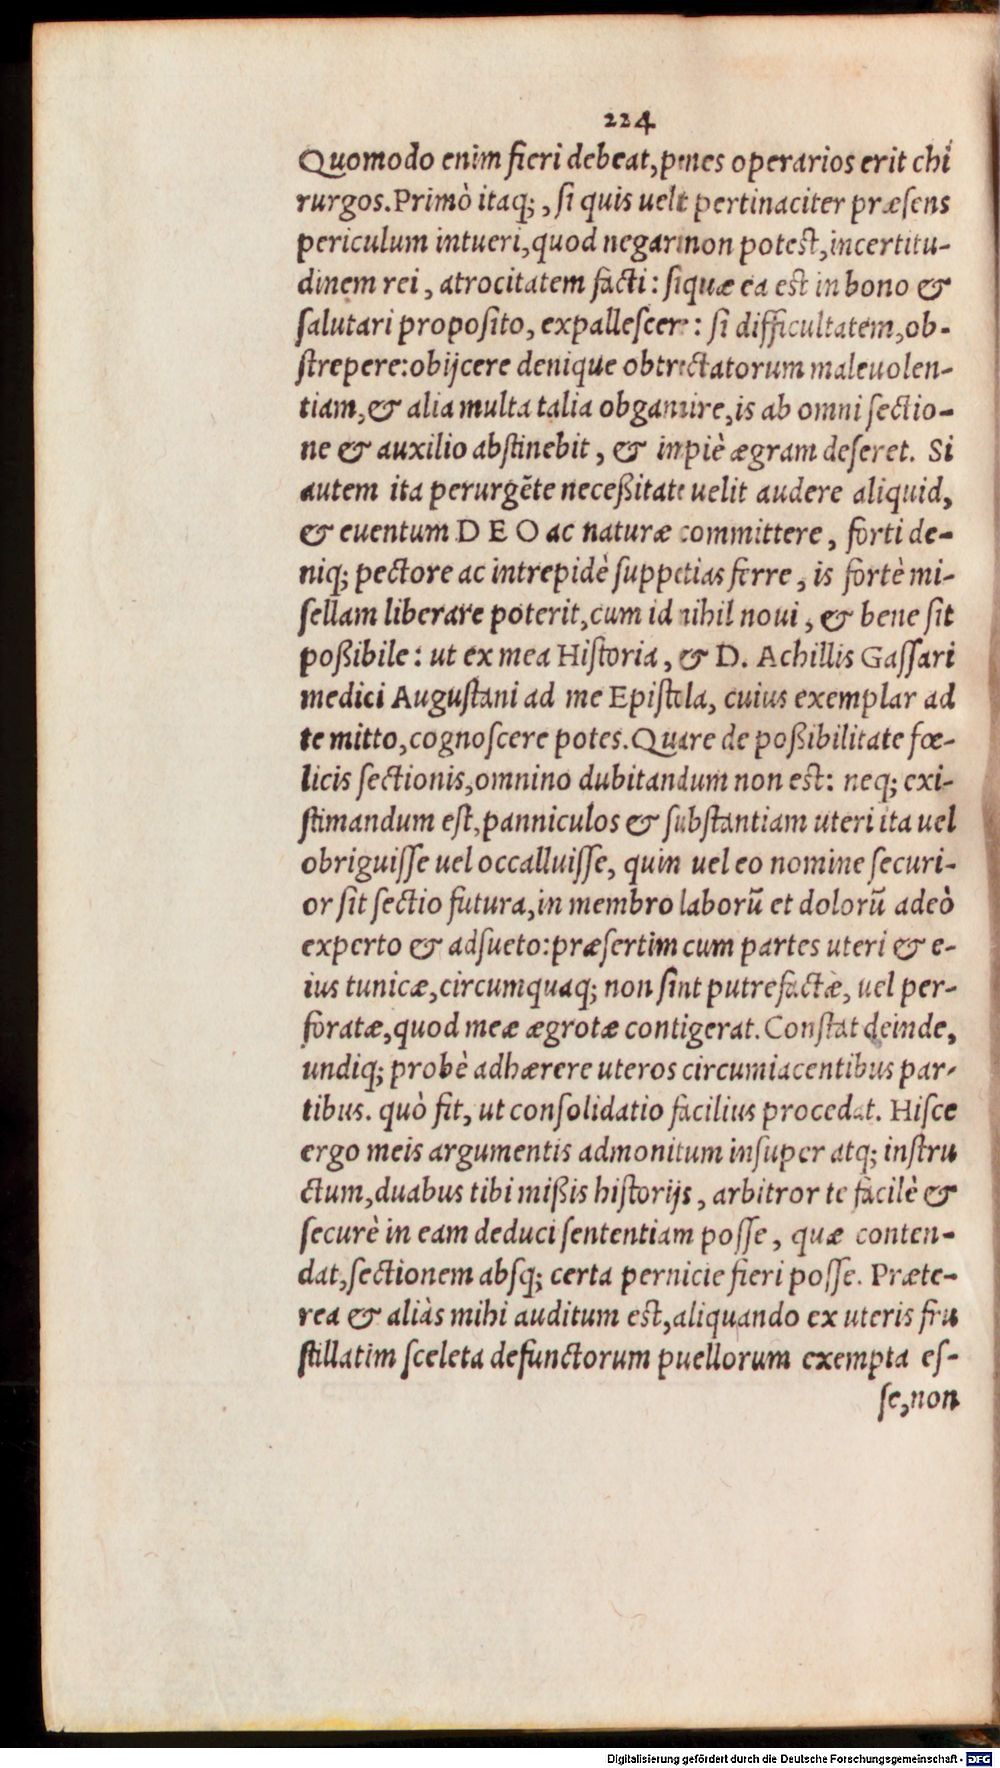 224
Quomodo enim fieri debeat, penes operarios erit chi
rurgos. Primò itaq;, ſi quis uelit pertinaciter præſens
periculum intueri, quod negari non poteſt, incertitu-
dinem rei, atrocitatem facti: ſiquæ ea eſt in bono &
ſalutari propoſito, expalleſcere: ſi difficultatem, ob-
ſtrepere: obijcere denique obtrectatorum maleuolen-
tiam, & alia multa talia obgannire, is ab omni ſectio-
ne & auxilio abſtinebit, & impiè ægram deſeret. Si
autem ita perurgēte neceßitate uelit audere aliquid,
& euentum D E O ac naturæ committere, forti de-
niq; pectore ac intrepidè ſuppetias ferre, is fortè mi-
ſellam liberare poterit, cum id nihil noui, & bene ſit
poßibile: ut ex mea Hiſtoria, & D. Achillis Gaſſari
medici Auguſtani ad me Epiſtola, cuius exemplar ad
te mitto, cognoſcere potes. Quare de poßibilitate fœ-
licis ſectionis, omnino dubitandum non eſt: neq; exi-
ſtimandum eſt, panniculos & ſubſtantiam uteri ita uel
obriguiſſe uel occalluiſſe, quin uel eo nomine ſecuri-
or ſit ſectio futura, in membro laborū et dolorū adeò
experto & adſueto: præſertim cum partes uteri & e-
ius tunicæ, circumquaq; non ſint putrefactæ, uel per-
foratæ, quod meæ ægrotæ contigerat. Conſtat deinde,
undiq; probè adhærere uteros circumiacentibus par-
tibus. quò fit, ut conſolidatio facilius procedat. Hiſce
ergo meis argumentis admonitum inſuper atq; inſtru
ctum, duabus tibi mißis hiſtorijs, arbitror te facilè &
ſecurè in eam deduci ſententiam poſſe, quæ conten-
dat, ſectionem abſq; certa pernicie fieri poſſe. Præte-
rea & aliàs mihi auditum eſt, aliquando ex uteris fru
ſtillatim ſceleta defunctorum puellorum exempta eſ-
ſe, non
Digitalisierung gefördert durch die Deutsche Forschungsgemeinschaft - DFG